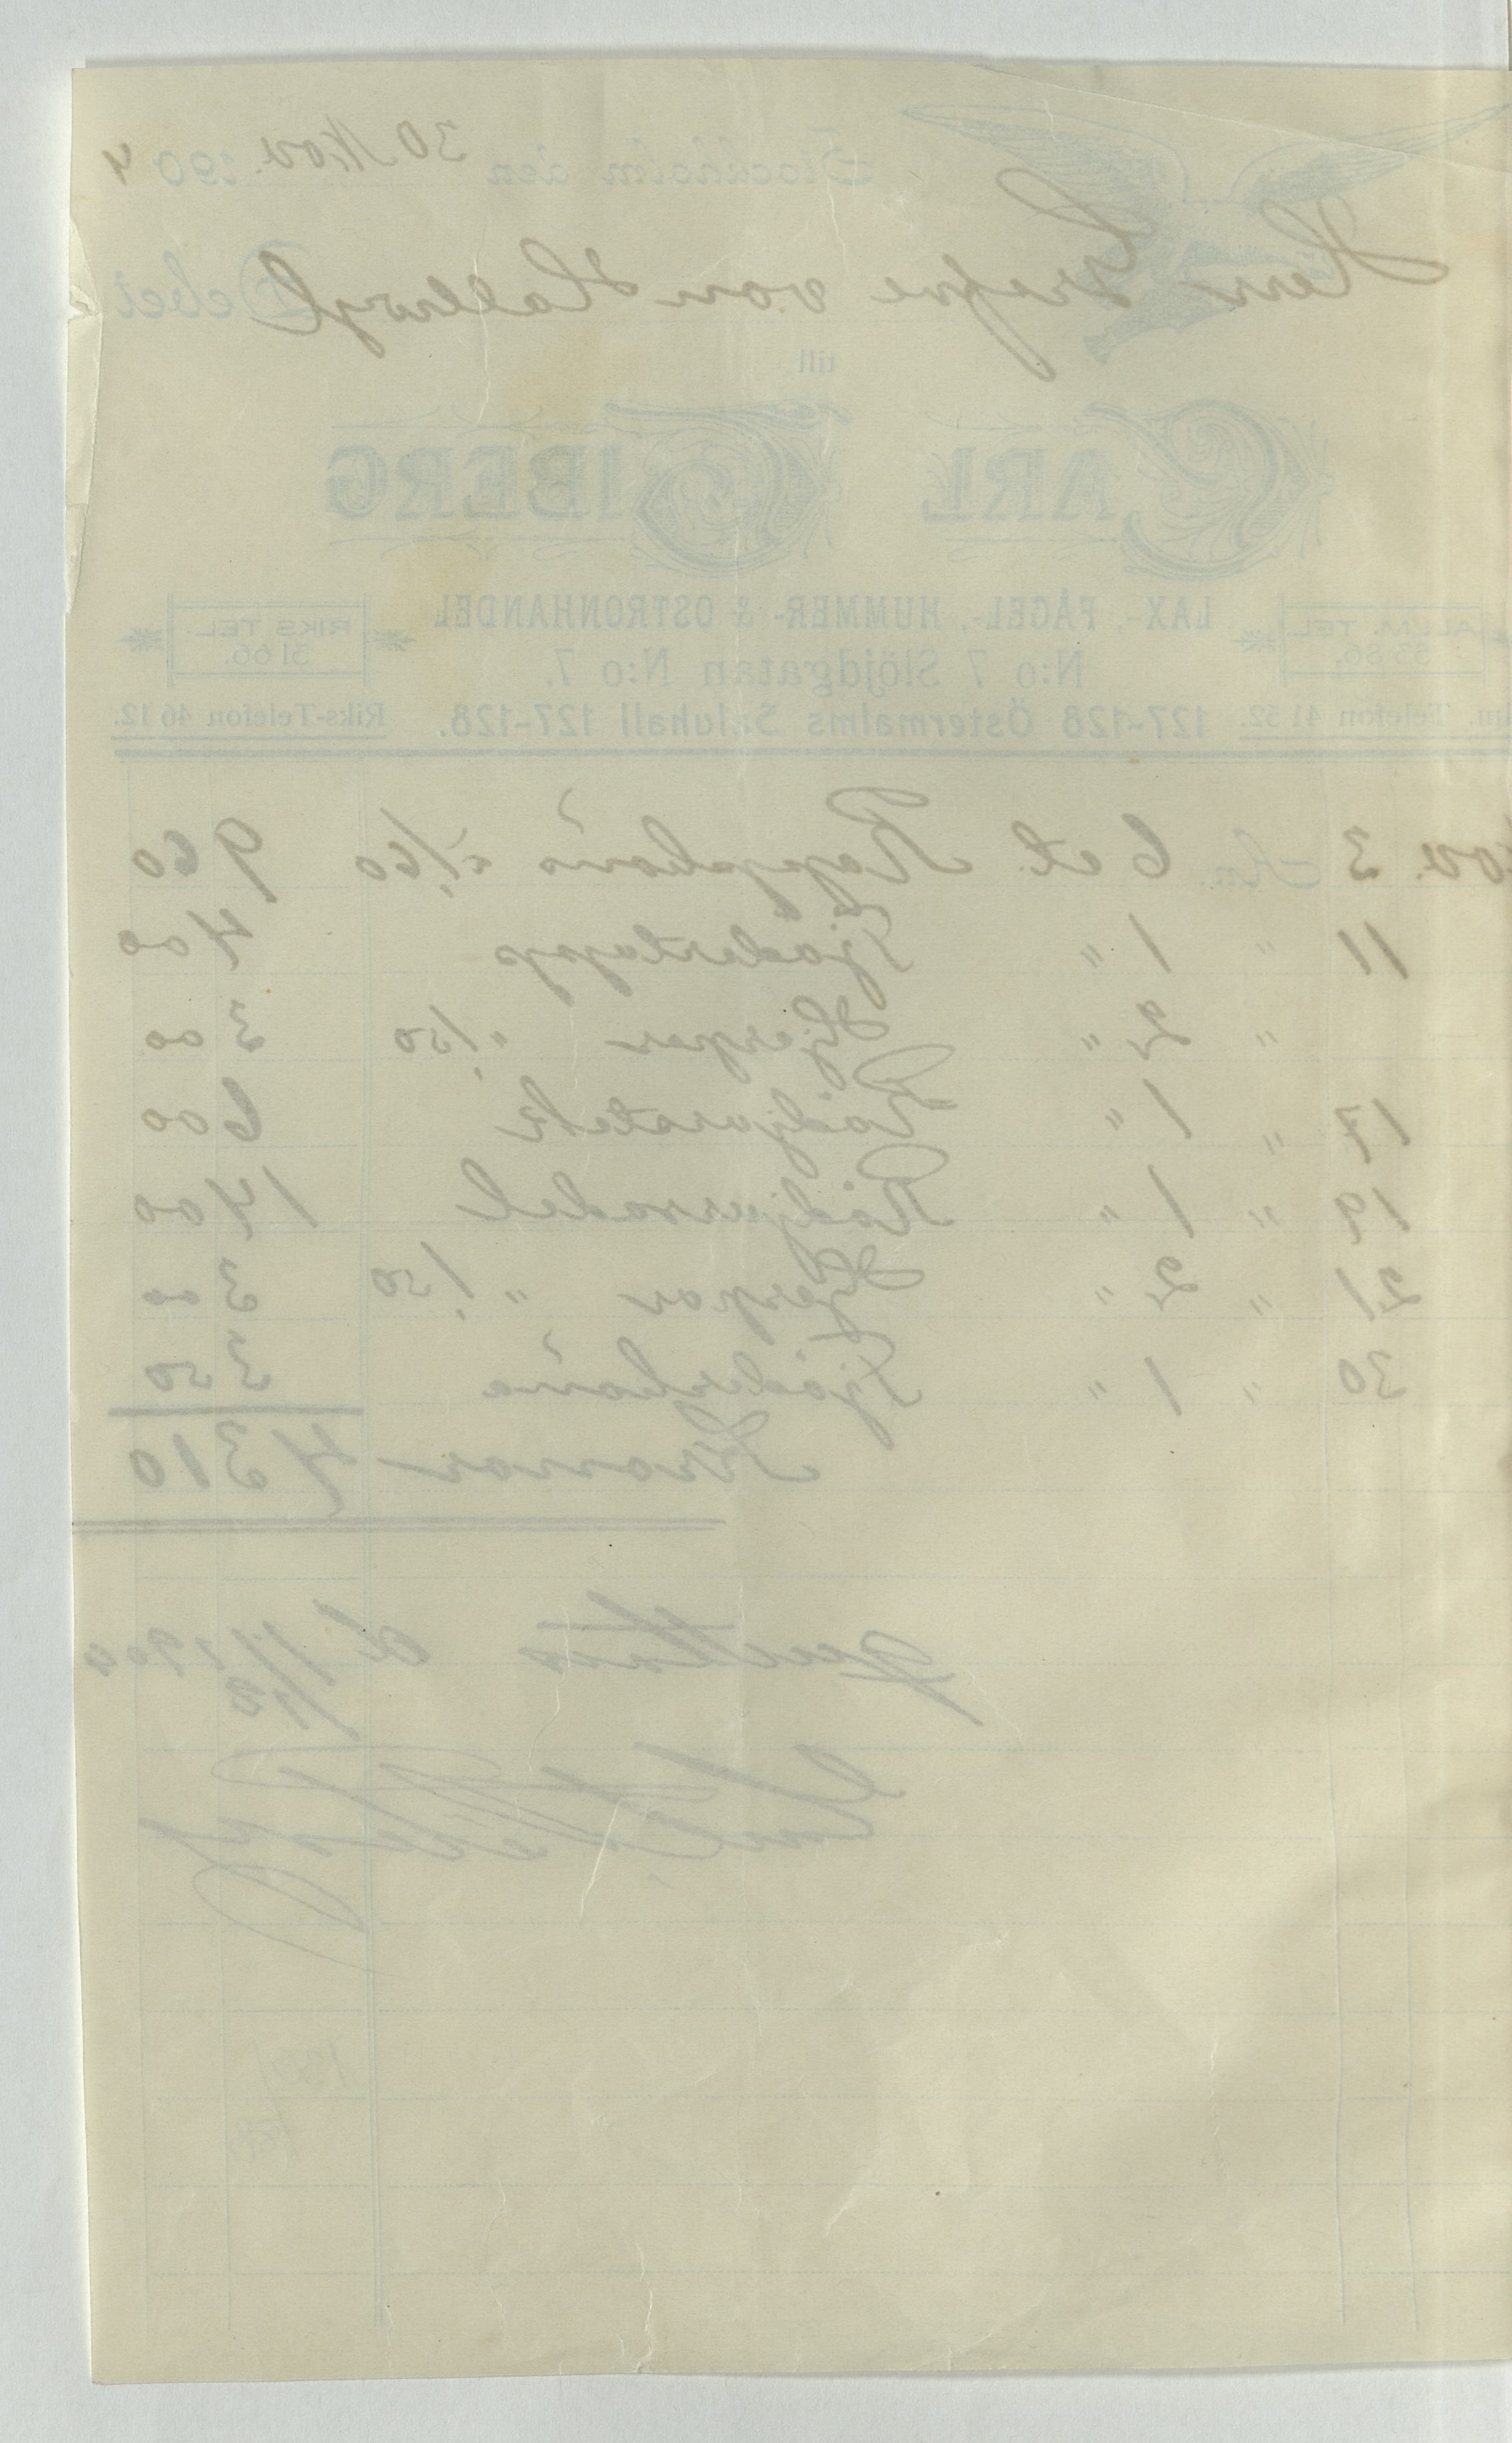 Stockholm den 30 Nov. 1904
Herr Grefve von Hallwyl Debet
till
CARL TIBERG
LAX-, FÅGEL-, HUMMER- & OSTRONHANDEL
ALLM. TEL. RIKS TEL.
31 66.
N:o 7 Slöjdgatan N:o 7.
Telefon 41 52. 127-128 Östermalms Saluhall 127-128. Riks-Telefon 46 12.
Nov. 3 6 st. Rapphöns á 1,60 9 60
11 " 1 " Tjädertupp 4 00
" 2 " Hjerpar " 1,50 3 00
17 " 1 " Rådjursstek 6 00
19 " 1 " Rådjurssadel 14 00
21 " 2 " Hjerpar " 1,50 3 00
30 " 1 " Tjäderhöna 3 50
Kronor 43 10
Qvitteras d. 11/12 1904
Carl Tiberg